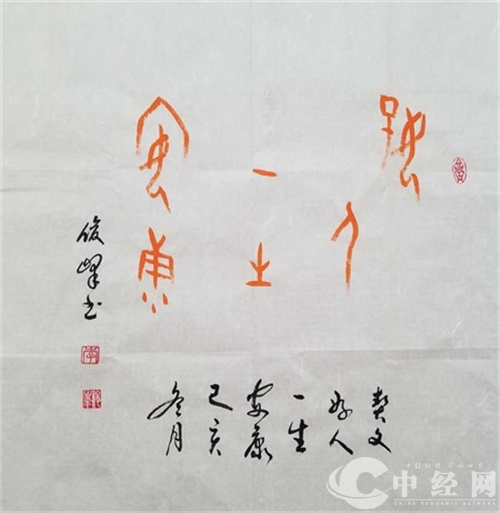 好人
一生
安康
契文
好人
一生
安康
己亥
冬月
俊峰书
中经网
CHINA ECONOMIC NETWORK